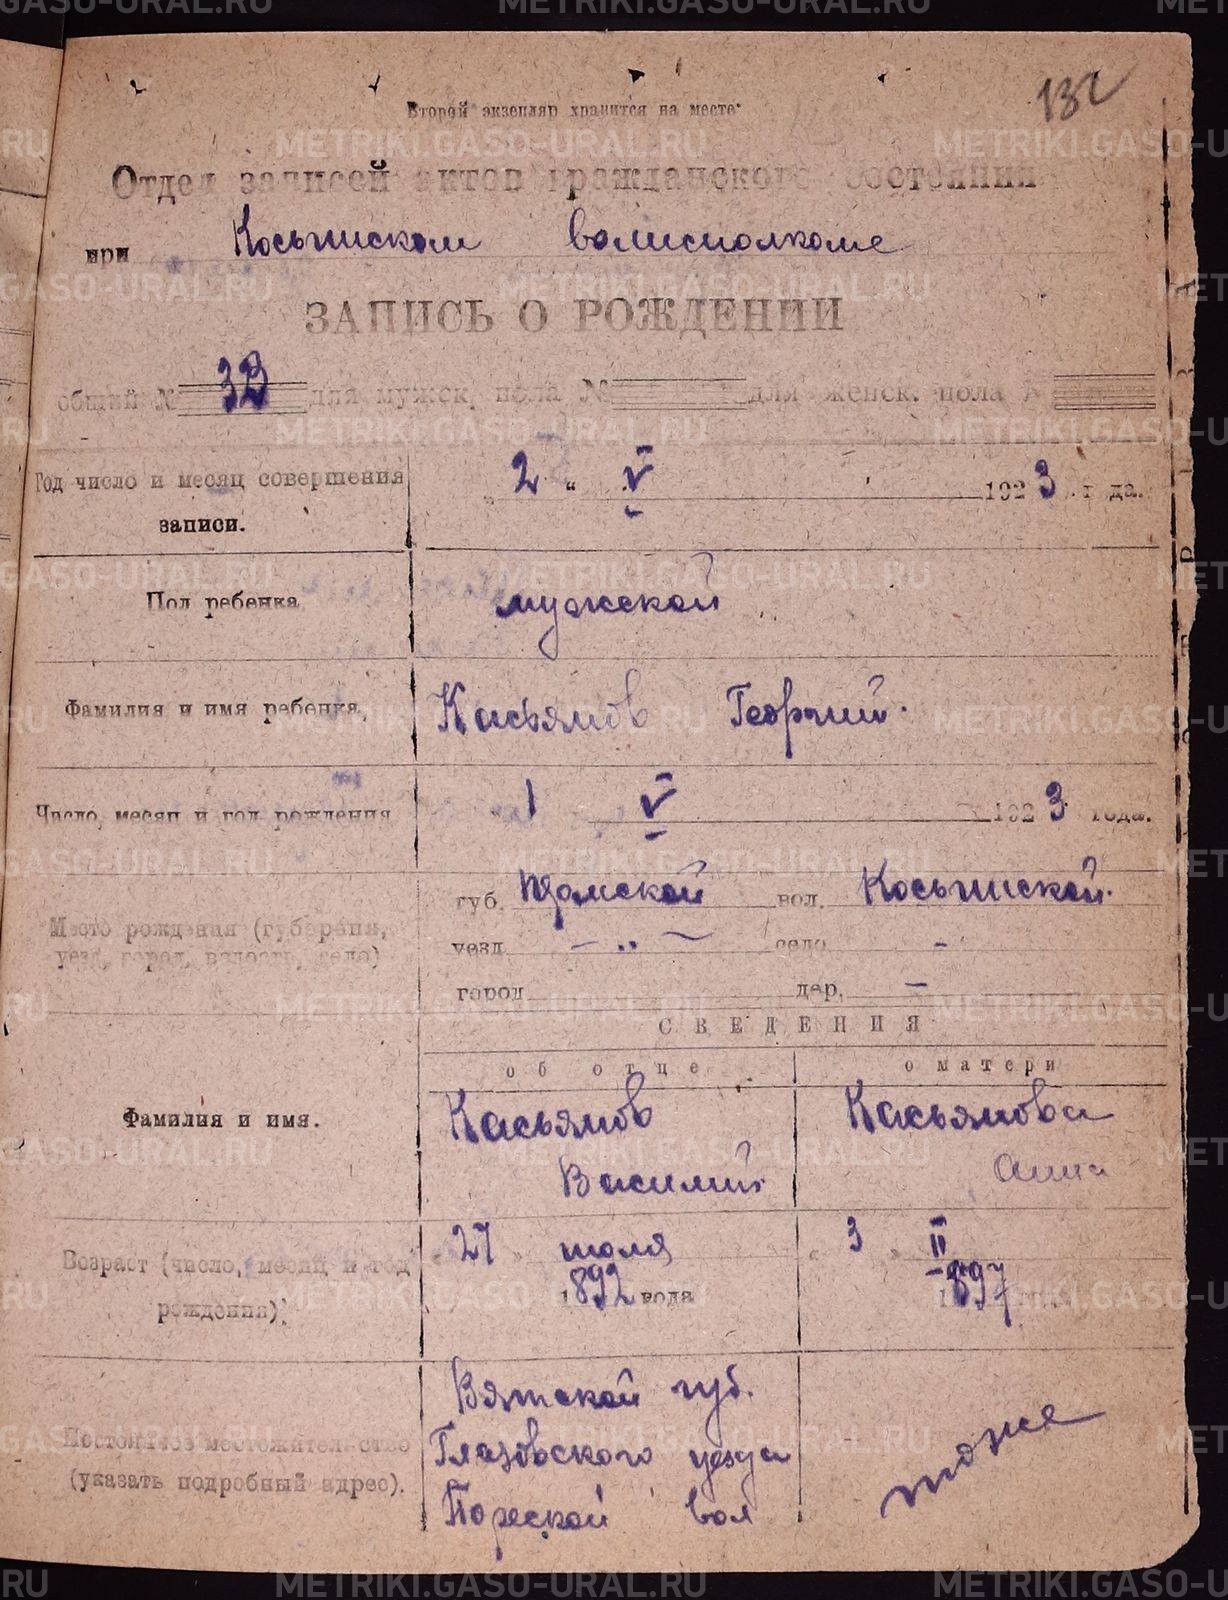 132
Второй экземпляр хранится на месте
Отдел записей актов гражданского состояния
при Косьинском волисполкоме
ЗАПИСЬ О РОЖДЕНИИ
общий № для мужск. пола № для женск. пола №
Год число и месяц совершения записи.
2 " V 1923 года.
Пол ребенка
мужской
Фамилия и имя ребенка,
Касьянов Георгий.
Число, месяц и год рождения
1 V 1923 года.
Место рождения (губерния, уезд, город, волость, село)
губ. вол. Косьинской.
уезд — „ — село -
город дер. —
СВЕДЕНИЯ
об отце о матери
Фамилия и имя.
Касьянов Касьянова
Василий Анна
Возраст (число, месяц и год рождения).
27 " июля " 3 " II
1892 года 1897
Постоянное местожительство (указать подробный адрес).
Вятской губ.
Глазовского уезда
вол
тоже
METRIKI.GASO-URAL.RU